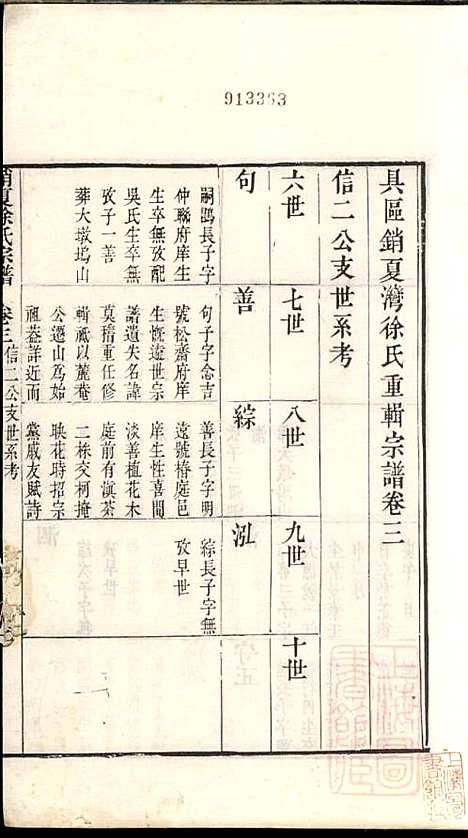 913363
具區銷夏灣徐氏重輯宗譜卷三
信二公支世系考
六世
七世
八世
九世
十世
句
善
綜
泓
嗣鵾長子字
仲聯府庠生
生卒無攷配
吳氏生卒無
攷子一善
葬大墩塢山
句子字念吉
號松齋府庠
生慨遠世宗
譜遺失名諱
莫稽重任修
輯祗以麓菴
公遷山為始
祖葢詳近而
善長子字明
遠號椿庭邑
庠生性喜閒
淡善植花木
庭前有滇茶
二株交柯掩
映花時招宗
黨戚友賦詩
綜長子字無
攷早世
銷夏徐氏宗譜
卷三信二公支世系考